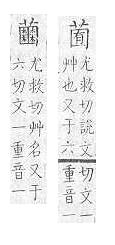 尤救切説文
艸也又于六
切文一
重音一
尤救切艸名又于
六切文一重音一